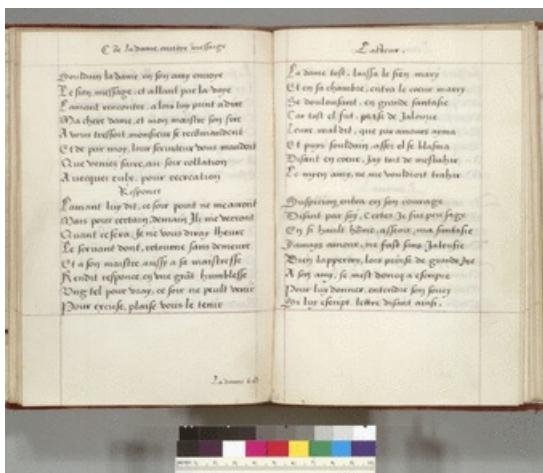 De la dame envoie message
Souldain la dame, en son amy envoye
Le sien message, et allant par la voye
Lamant rencontre, a lors luy print a dire
Ma chere dame, et mon maistre son sire
A vous tressort monsieur se recomandent
Et de par moy, leur serviteur vous mandent
Que venies faire, au soir collation
Avecques eulx, pour recreation
Responce
Lamant luy dit, ce soir point ne me auront
Mais pour certain, demain Ilz me verront
Quant ce sera, Je ne vous diray lheure
Le servant dont, retourne sans demeure
Et a son maistre aussy a sa maistresse
Rendit responce, en une grad humblesse
Ung tel pour vray, ce soir ne peult venir
Pour excuse, plaise vous le tenir
La dame
Lacteur.
La dame tost, laissa le sien mary
Et en sa chambre, entra le coeur marry
Se doulousant, en grande fantasie
Car tost el fut, prise de Jalousie
Leure maldit, que par amours ayma
Et puys souldain, asses el se blasma
Disant en coeur, Jay tort de mesbahir
Le myen amy, ne me vouldroit trahir
Suspicion, entra en son courage
Disant par soy, Certes Je suis peu sage
En si hault home, asseoir, ma fantasie
Jamays amour, ne fust sans Jalousie
Bien lapperceu, lors prinse de grande Ire
A son amy, se mest doncq a escripre
Pour luy donner, entendre son soucy
Et luy escript, lettre disant ainsi.